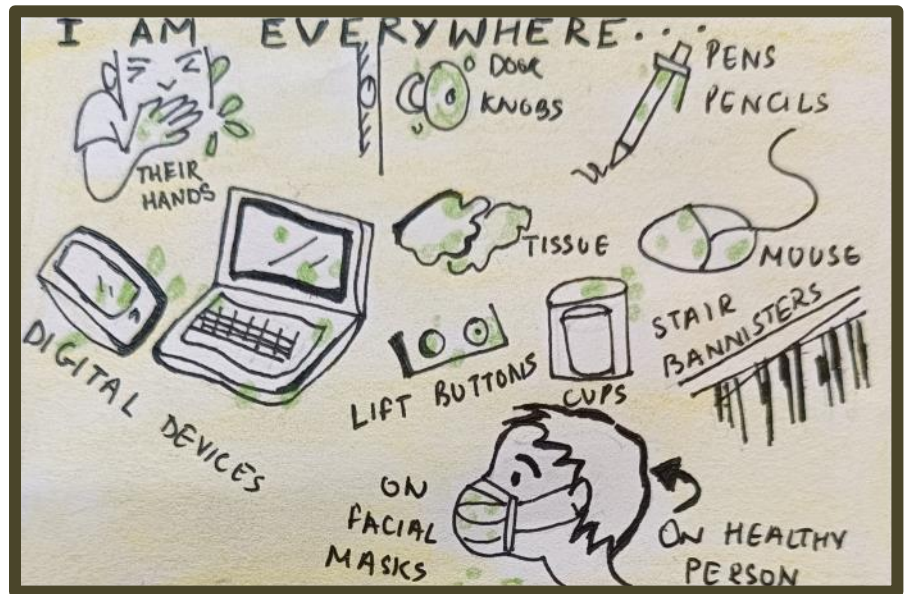 I AM EVERYWHERE...
THEIR
HANDS
DOOR
KNOBS
PENS
PENCILS
DIGITAL DEVICES
TISSUE
MOUSE
LIFT BUTTONS
CUPS
STAIR
BANNISTERS
ON
FACIAL
MASKS
ON HEALTHY
PERSON